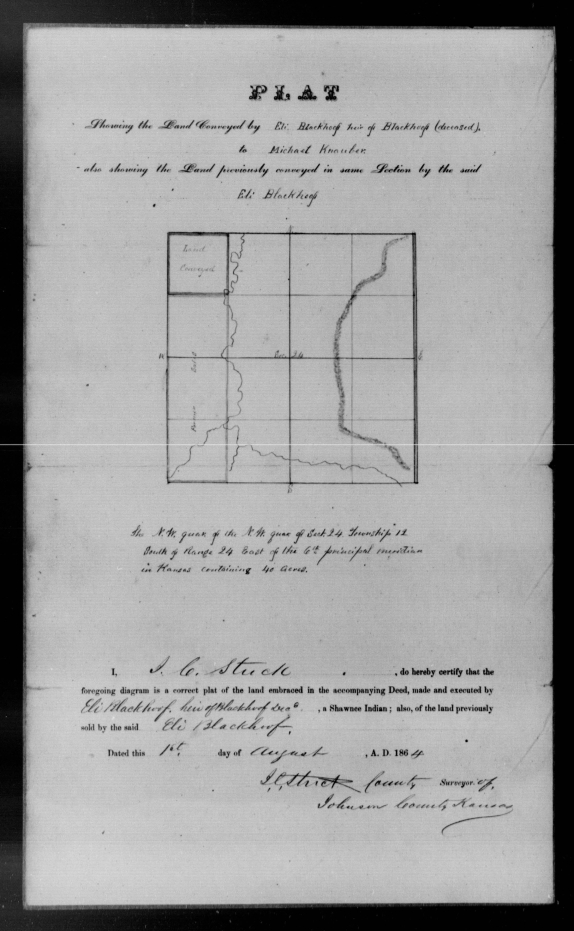 PLAT
Showing the Land Conveyed by Eli Blackhoof heir of Blackhoof (deceased).
to Michael Knauber
also showing the Land previously conveyed in same Section by the said
Eli Blackhoof
Land
Conveyed
W
Sec. 24
Sold
The N.W. quar of the N.W. quar of Sect 24 Township 12
South of Range 24 East of the 6th principal meridian
in Kansas containing 40 acres.
I, J. C. Stuck, do hereby certify that the
foregoing diagram is a correct plat of the land embraced in the accompanying Deed, made and executed by
Eli Blackhoof, heir of Blackhoof Decd. , a Shawnee Indian; also, of the land previously
sold by the said Eli Blackhoof.
Dated this 1st. day of August , A. D. 1864
J. C. Stuck County Surveyor of,
Johnson County Kansas